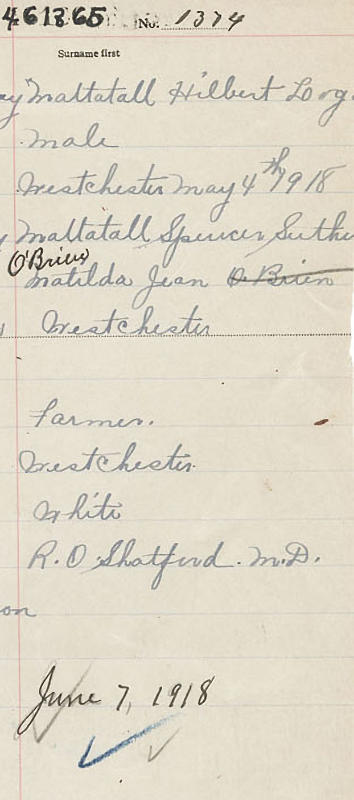 461865 No. 1374
Surname first
Mattatall Hilbert
male
Westchester May 4th 1918
Mattatall Spencer
O'Brien
Matilda Jean O'Brien
Westchester
Farmer.
Westchester
White
R. O. Shatford. M.D.
on
June 7, 1918